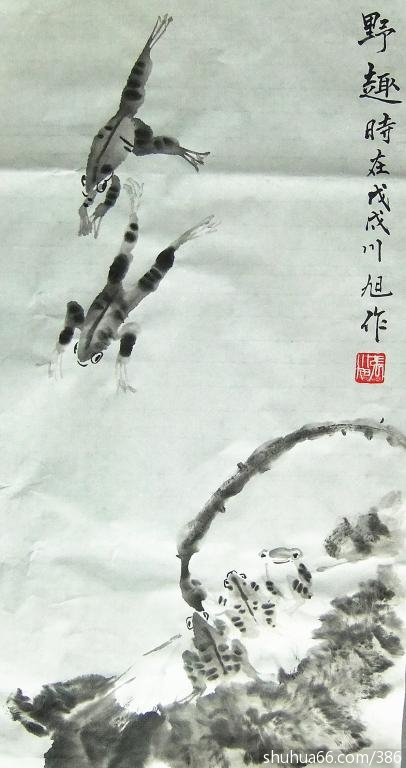 野趣時在戊戌川旭作
shuhua66.com/386